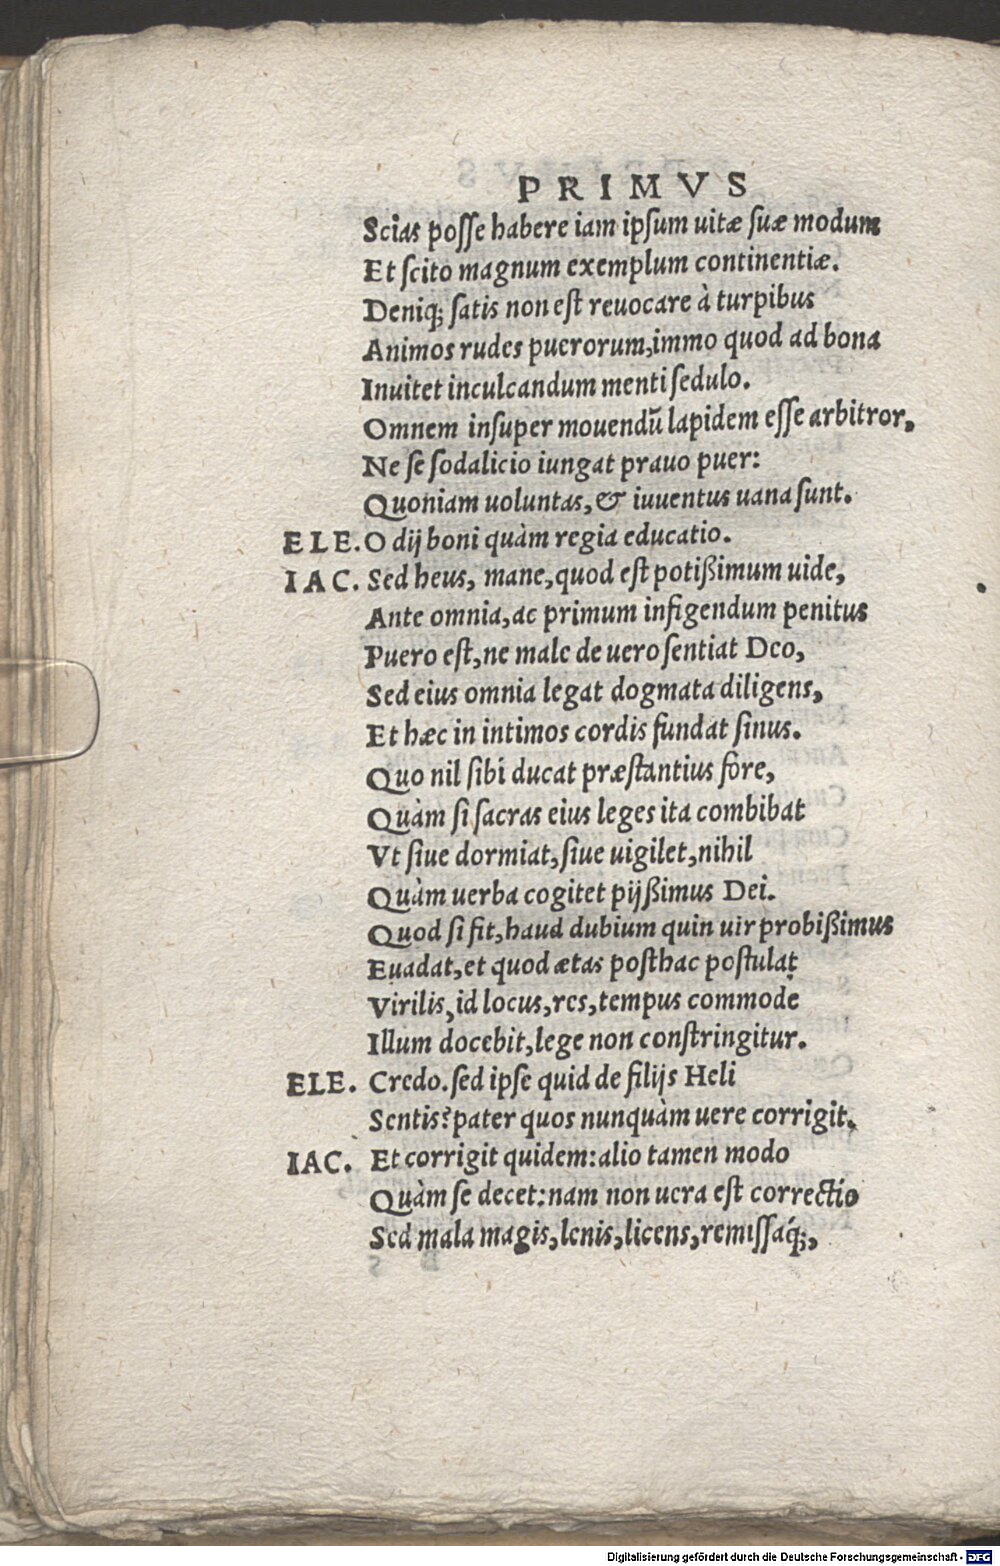 PRIMVS
Scias posse habere iam ipsum uitæ suæ modum
Et scito magnum exemplum continentiæ.
Deniq; satis non est reuocare à turpibus
Animos rudes puerorum,immo quod ad bona
Inuitet inculcandum menti sedulo.
Omnem insuper mouendū lapidem esse arbitror,
Ne se sodalicio iungat prauo puer:
Quoniam uoluntas, & iuuentus uana sunt.
ELE. O dij boni quàm regia educatio.
IAC. Sed heus, mane,quod est potißimum uide,
Ante omnia,ac primum infigendum penitus
Puero est,ne male de uero sentiat Deo,
Sed eius omnia legat dogmata diligens,
Et hæc in intimos cordis fundat sinus.
Quo nil sibi ducat præstantius fore,
Quàm si sacras eius leges ita combibat
Vt siue dormiat,siue uigilet,nihil
Quàm uerba cogitet pijßimus Dei.
Quod si fit,haud dubium quin uir probißimus
Euadat,et quod ætas posthac postulat
Virilis,id locus,res,tempus commode
Illum docebit,lege non constringitur.
ELE. Credo.sed ipse quid de filijs Heli
Sentis?pater quos nunquàm uere corrigit.
IAC. Et corrigit quidem:alio tamen modo
Quàm se decet:nam non uera est correctio
Sed mala magis,lenis,licens,remissáq;,
Digitalisierung gefördert durch die Deutsche Forschungsgemeinschaft - DFG